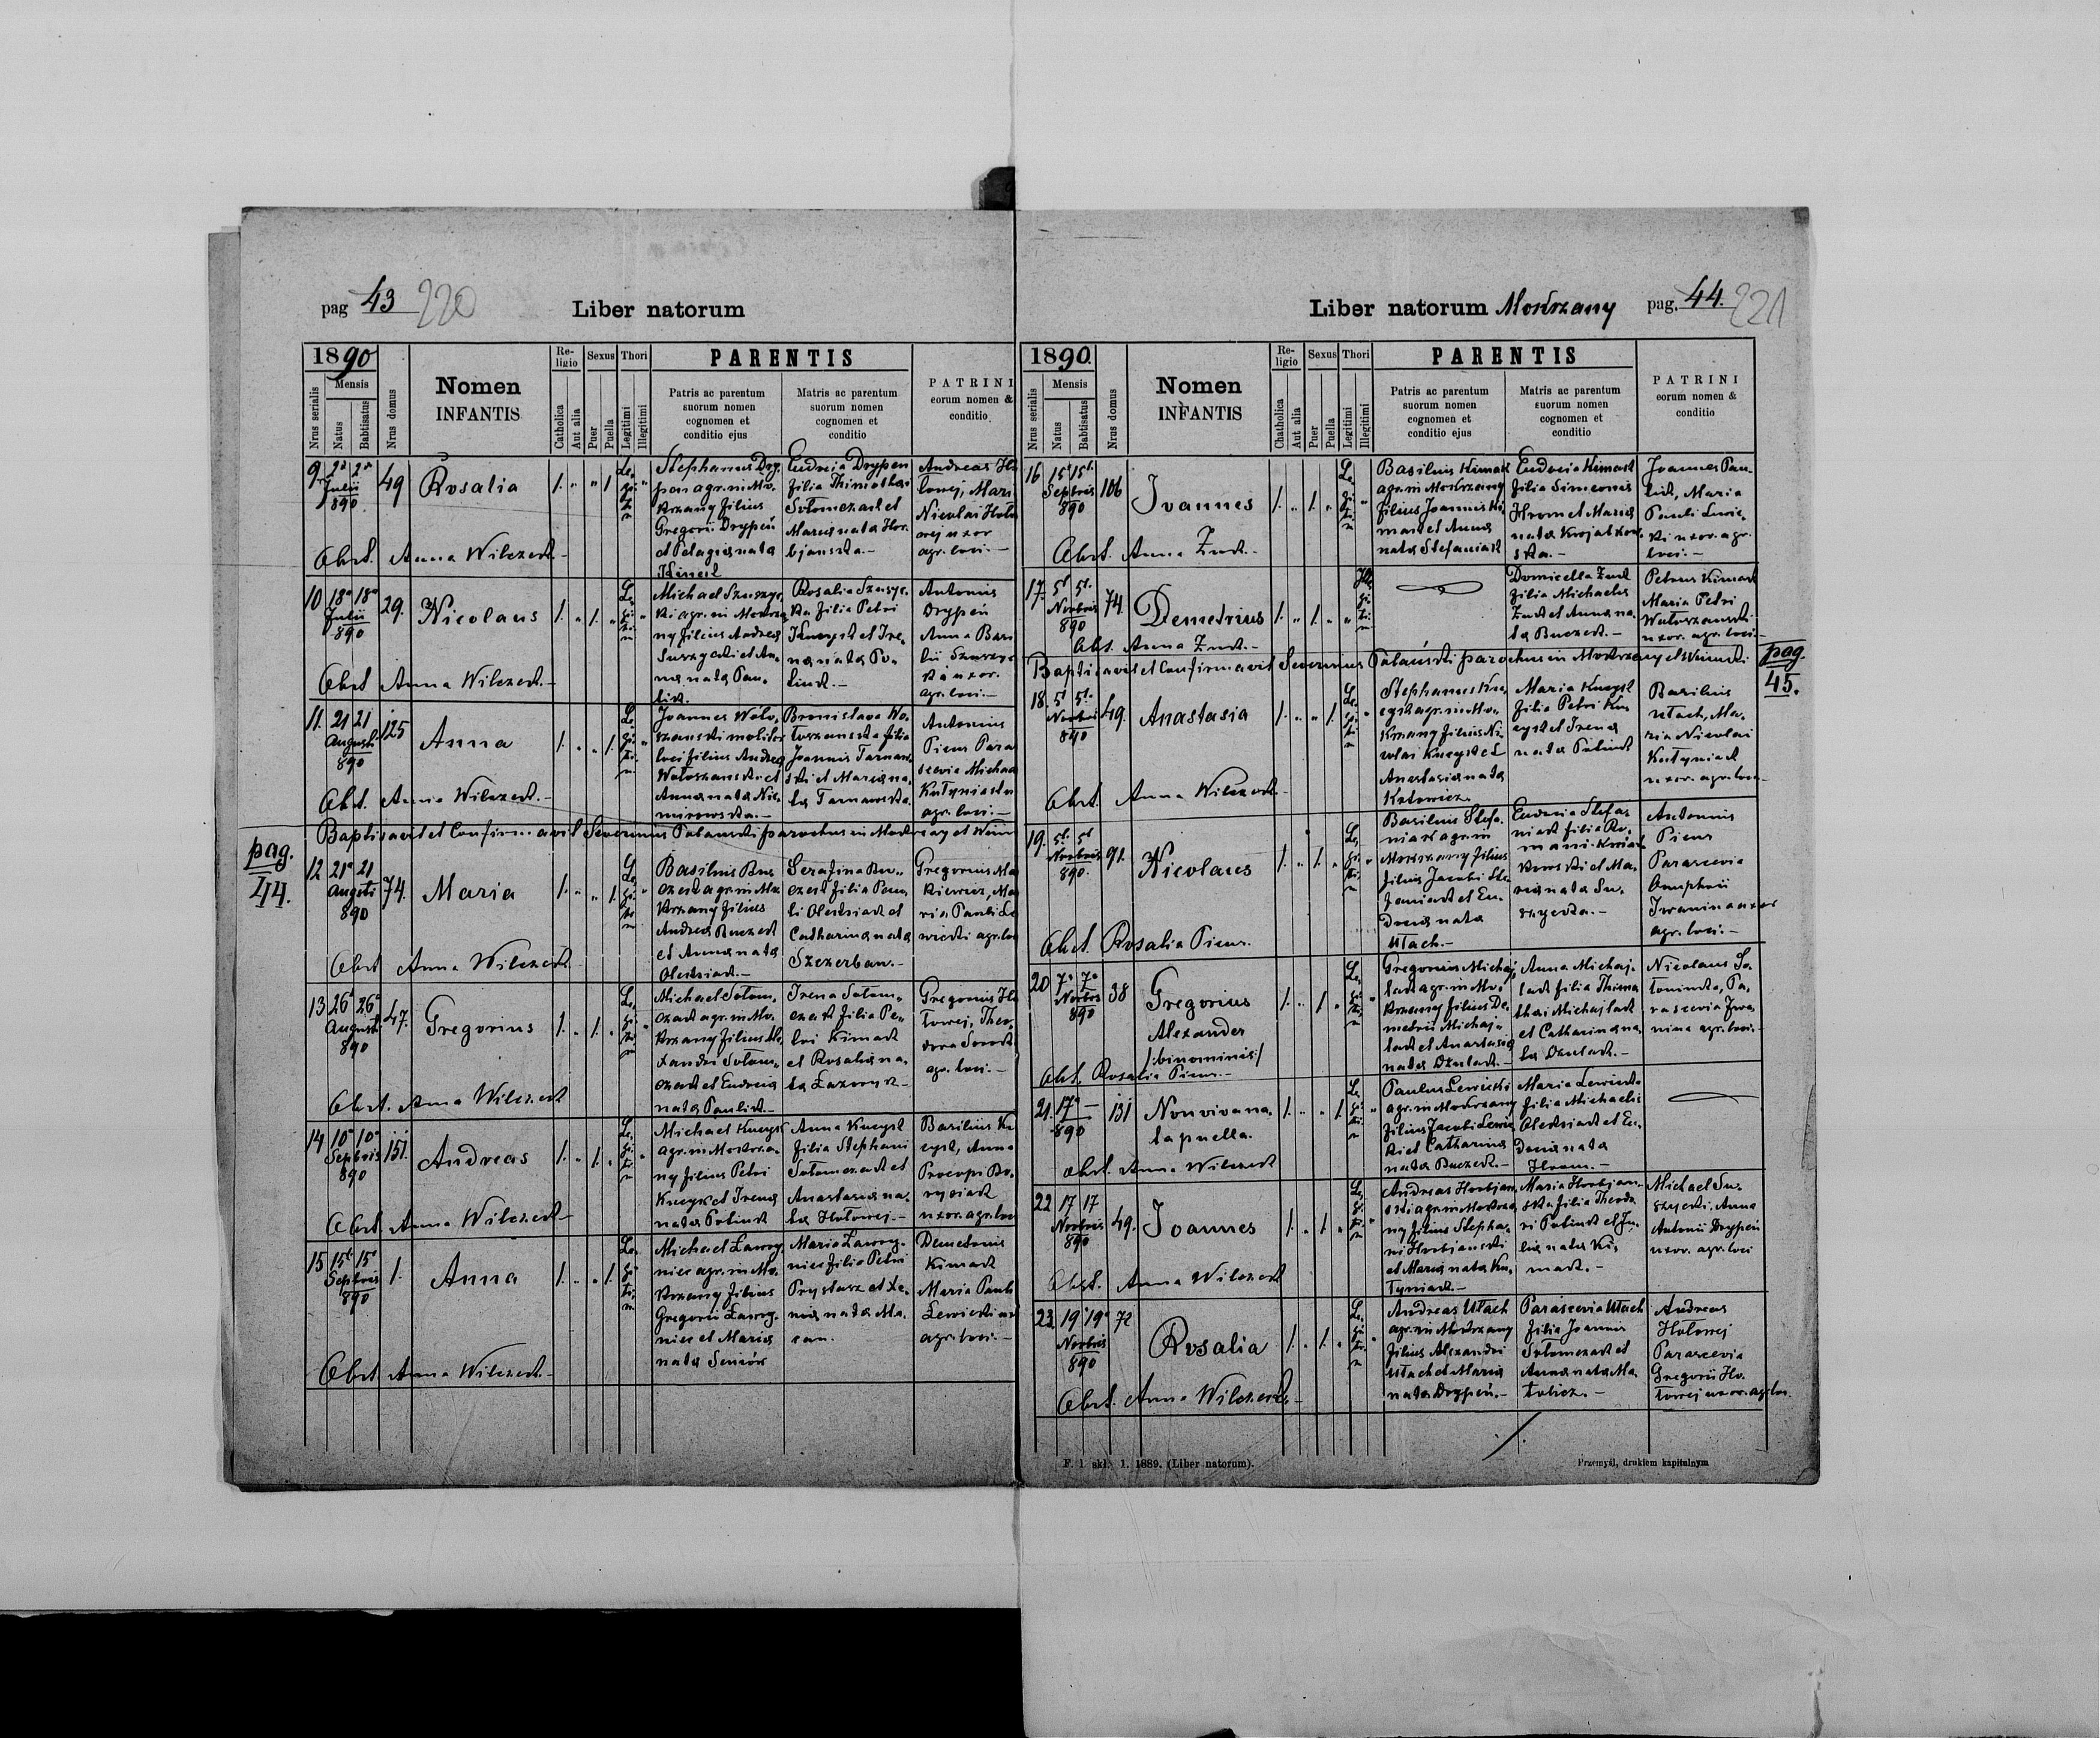 pag 43 220
Liber natorum
1890
Nrus serialis
Mensis
Natus
Babtisatus
Nrus domus
Nomen
INFANTIS
Re-
ligio
Catholica
Aut alia
Sexus
Puer
Puella
Thori
Legitimi
Illegitimi
PARENTIS
Patris ac parentum
suorum nomen
cognomen et
conditio ejus
Matris ac parentum
suorum nomen
cognomen et
conditio
PATRINI
eorum nomen &
conditio
9 2a 2a
Julii
890
49 Rosalia
1. „ „ 1
Stephanus Dry,
pan agr. in Mo,
krzany filius
Gregorii Drypen
et Pelagia nata
Eudocia Drypen
filia Thimothei
Sołomczak et
Maria nata Hor,
bjanska.-
Andreas
Nicolai
uxor
agr. loci.-
Obst. Anna Wilczek-
10 18a 18a
Julii
890
29. Nicolaus
1. „ 1. „
Michael
ki agr. in Mokrza
ny filius Andrea
et An,
na nata Pau,
lik.
Rosalia
ka filia Petri
et Ire,
na nata Po,
link.-
Antonius
Drypen
Anna Basi
lii
uxor.
agr. loci.-
Obst Anna Wilczek.-
11. 21 21
Augusti
890
125 Anna
1. „ „ 1.
Joannes Woło,
szanski molitor
loci filius Andrea
Wołoszanski et
Anna nata Nie,
Bronislava Wo,
łoszanska filia
Joannis Tarnaw
ski et Maria na,
ta Tarnawska.
Antonius
Picur Para
scevia Michae
agr. loci.-
Obst. Anna Wilczek.-
Baptisavit et Confirmavit Severinus Palanski parochus in Mokrzany et
pag.
44.
12 21a 21
Augsti
890
74. Maria
1. „ „ 1.
Basilius Bu
czek agr. in Mo
krzany filius
Andrea Buczek
et Anna nata
Oleksiak.-
Serafina Bu-
czek filia Pau,
li Oleksiak et
Catharina nata
Szczerban.-
Gregorius Ma
kiewicz, Ma
ria Pauli Le
wicki agr. loci
Obst Anna Wilczek
13 26a 26a
Augusti
890
47. Gregorius
1. „ 1. „
Michael Sołom,
czak agr. in Mo,
krzany filius Ale
xandri Sołom,
czak et Eudocia
nata Paulik.-
Irena Sołom,
czak filia Pe,
tri Kimak
et Rosalia na,
ta Łazoryk-
Gregorius Ho
łowej, Theo,
dora
agr. loci.-
Obst. Anna Wilczek
14 10a 10a
Septbris
890
151. Andreas
1. „ 1. „
Michael Kucyk
agr. in Mokrza
ny filius Petri
Kucyk et Irena
nata Polink
Anna Kucyk
filia Stephani
Sołomczak et
Anastasia na,
ta Hołowej.-
Basilius Ku
cyk, Anna
Procopi Bo,
rysiak
uxor. agr. loci
Obst Anna Wilczek-
15 15t 15a
Septbris
890
1. Anna
1. „ „ 1.
Michael Lawry
niec agr. in Mo,
krzany filius
Gregorii Lawry,
niec et Maria
nata Seniów
Maria Lawry,
niec filia Petri
Prystasz et Xe,
nia nata Ma,
can.
Demetrius
Kimak
Maria Pauli
Lewicki
agr. loci.-
Obst Anna Wilczek.-
Liber natorum Mokrzany pag. 44. 221
1890.
Nrus serialis
Mensis
Natus
Babtisatus
Nrus domus
Nomen
INFANTIS
Re-
ligio
Chatholica
Aut alia
Sexus
Puer
Puella
Thori
Legitimi
Illegitimi
PARENTIS
Patris ac parentum
suorum nomen
cognomen et
conditio ejus
Matris ac parentum
suorum nomen
cognomen et
conditio
PATRINI
eorum nomen &
conditio
16 15t 15t.
Septbris
890
106 Joannes
1. „ 1. „
Basilius Kimak
agr. in Mokrzany
filius Joannis Ki
mak et Anna
nata Stefaniak
Eudocia Kimak
filia Simeonis
Hrom et Maria
nata Kwjatkow
ska.-
Joannes Pau-
lik, Maria
Pauli Lewic,
ki uxor. agr.
loci.-
Obst. Anna Żuk.-
17. 5t 5t.
Novbris
890
74. Demetrius
1. „ 1. „
Domicella Żuk
filia Michaelis
Żuk et Anna na,
ta Buczek.-
Petrus Kimak
Maria Petri
Wołoszanski
uxor. agr. loci.-
Obs. Anna Żuk.-
Baptisavit et Confirmavit Severinus Palanski parochus in Mokrzany et
pag.
45.
18. 5t 5t.
Novbris
890
49. Anastasia
1. „ „ 1.
Stephanus Ku,
cyk agr. in Mo,
krzany filius Ni
colai Kucyk et
Anastasia nata
Kotowicz.
Maria Kucyk
filia Petri Ku
cyk et Irena
nata Polink
Basilius
Utach, Ma,
ria Nicolai
Kutyniak
uxor. agr. loci-
Obst. Anna Wilczek-
19. 5t. 5t
Novbris
890.
91. Nicolaus
1. „ 1. „
Basilius Stefa,
niak agr. in
Mokrzany filius
filius Jacobi Ste
faniak et Eu,
docia nata
Utach.-
Eudocia Stefa
niak filia Ro,
mani Kwiat
kowski et Ma,
ria nata Su,
szycka.-
Antonius
Picur
Parascevia
Onuphrii
Iwanina uxor
agr. loci.-
Obst. Rosalia Picur.
20 7a 7a
Novbris
890
38 Gregorius
Alexander
/:binominis:/
1. „ 1. „
Gregorius Michaj,
lak agr. in Mo,
krzany filius De,
metrii Michaj,
lak et Anastasia
nata Dżulak.-
Anna Michaj,
lak filia Thimo
thei Michajlak
et Catharina na,
ta Dżulak.-
Nicolaus So,
łoninka, Pa,
rascevia Iwa
nina agr. loci.-
Obst. Rosalia Picur.-
21. 17a -
890
131 Non viva na,
ta puella.
1. „ „ 1.
Paulus Lewicki
agr. in Mokrzany
filius Jacobi Lewic
ki et Catharina
nata Buczek.-
Maria Lewicka
filia Michaelis
Oleksiak et Eu,
docia nata
Hrom.-
Obst. Anna Wilczek
22 17 17
Novbris
890
49. Joannes
1. „ 1. „
Andreas Horbjan,
ski agr. in Mokrza
ny filius Stepha,
ni Horbjanski
et Maria nata Ku,
tyniak.-
Maria Horbjan-
ska filia Theodo
ri Polink et Ju,
lia nata Ki,
mak.-
Michael Su,
szycki, Anna
Antonii Drypen
uxor. agr. loci
Obst. Anna Wilczek
23 19 19a
Novbris
890
72 Rosalia
1. „ 1. „
Andreas Utach
agr. in Mokrzany
filius Alexandri
Utach et Maria
nata Drypen.-
Parascevia Utach
filia Joannis
Sołomczak et
Anna nata Ma,
tolicz.-
Andreas
Hołowej
Parascevia
Gregorii Ho,
łowej uxor. agr. loci.
Obst. Anna Wilczek-
F. 1 skł. 1. 1889. (Liber natorum).
Przemyśl, drukiem kapitulnym